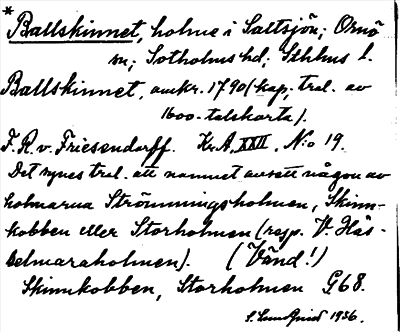 * Ballskinnet, holme i Saltsjön; Ornö
sn; Sotholms hd; Sthlms l.
Ballskinnet, omkr. 1790 (kop; trol. av
1600-talskarta).
F. R. v. Friesendorff. Kr.A. XXII, N:o 19.
Det synes trol. att namnet avsett någon av
holmarna Strömmingsholmen, Skinn-
kobben eller Storholmen (resp. V. Häs-
selmaraholmen). (Vänd!)
Skinnkobben, Storholmen G68.
S. Lundqvist 1936.